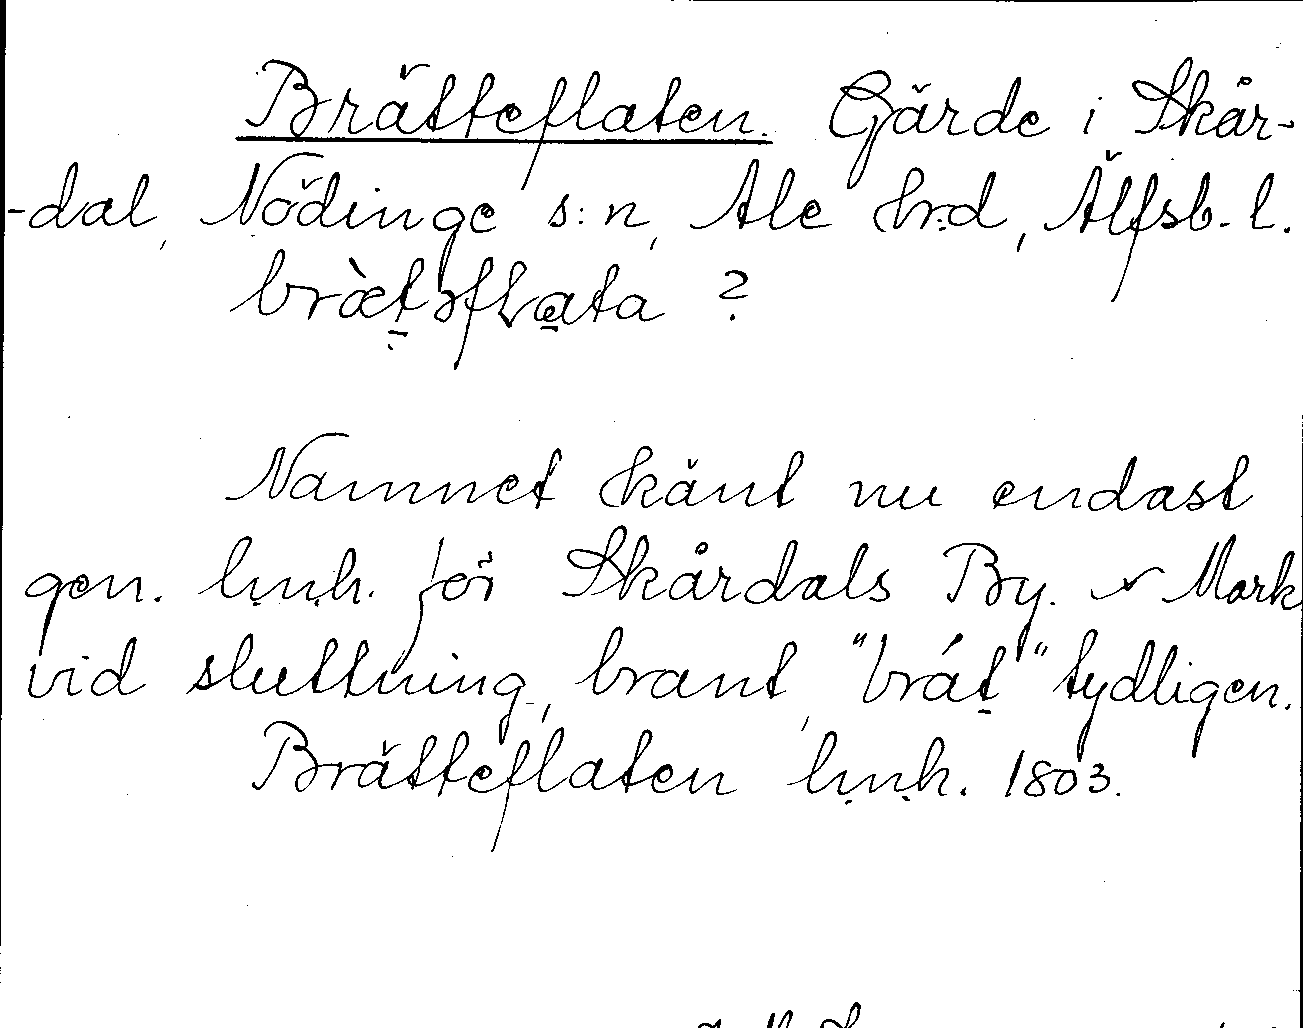 Brätteflaten. Gärde i Skår-
-dal, Nödinge s:n, Ale hrd, Älfsb. l.
bræ̀təflata ?
Namnet känt nu endast
gen. lmh. för Skårdals By. v Mark
vid sluttning, brant, "brát" tydligen.
Brätteflaten lmh. 1803.